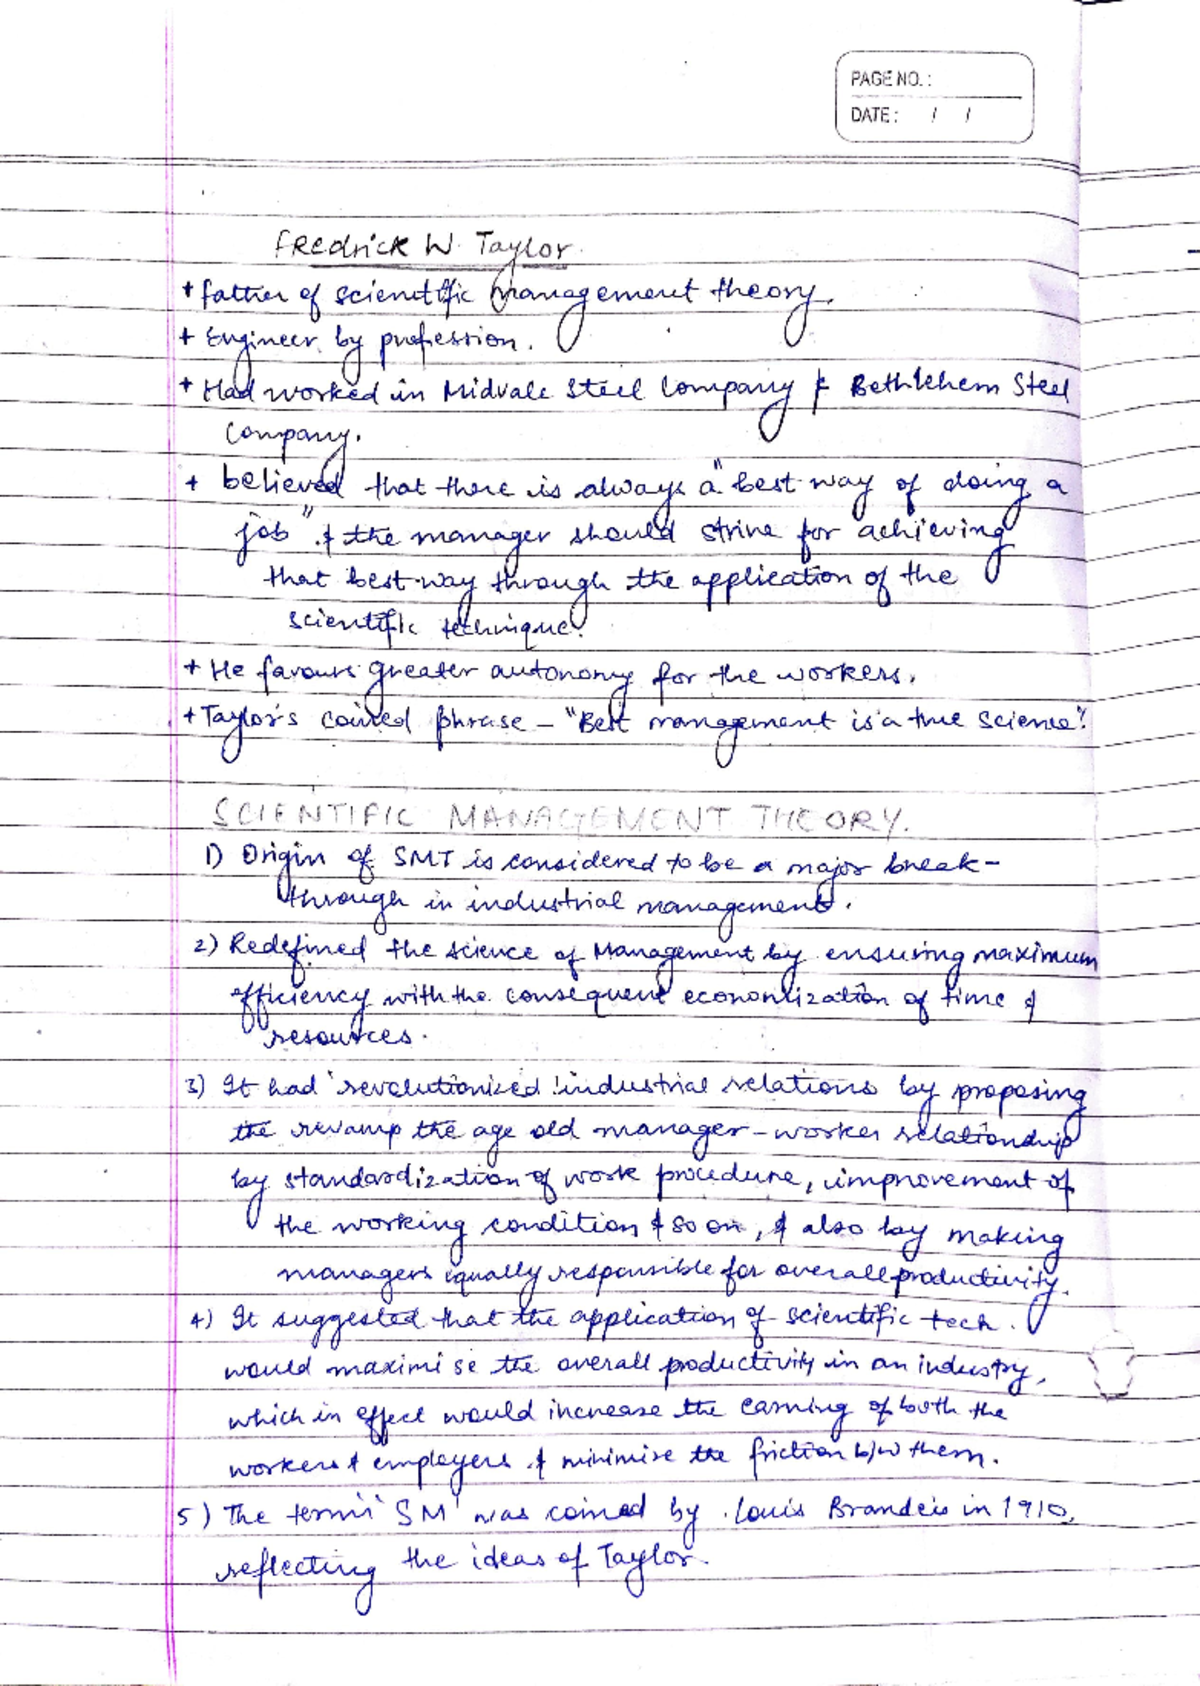 PAGE NO. :
DATE : / /
FREdrick W. Taylor.
+ father of scientific management theory.
+ Engineer by profession.
+ Had worked in Midvale Steel Company & Bethlehem Steel
Company.
+ believed that there is always a "best way of doing a
job" & the manager should strive for achieving
that best way through the application of the
scientific technique.
+ He favours greater autonomy for the workers.
+ Taylor's coined phrase – "Best management is a true science".
SCIENTIFIC MANAGEMENT THEORY.
1) Origin of SMT is considered to be a major break-
through in industrial management.
2) Redefined the science of Management by ensuring maximum
efficiency with the consequent economization of time &
resources.
3) It had 'revolutionized' industrial relations by proposing
the revamp the age old manager-worker relationship
by standardization of work procedure, improvement of
the working condition & so on, & also by making
managers equally responsible for overall productivity.
4) It suggested that the application of scientific tech.
would maximise the overall productivity in an industry,
which in effect would increase the earning of both the
workers & employers & minimise the friction b/w them.
5) The term 'SM' was coined by Louis Brandeis in 1910,
reflecting the ideas of Taylor.